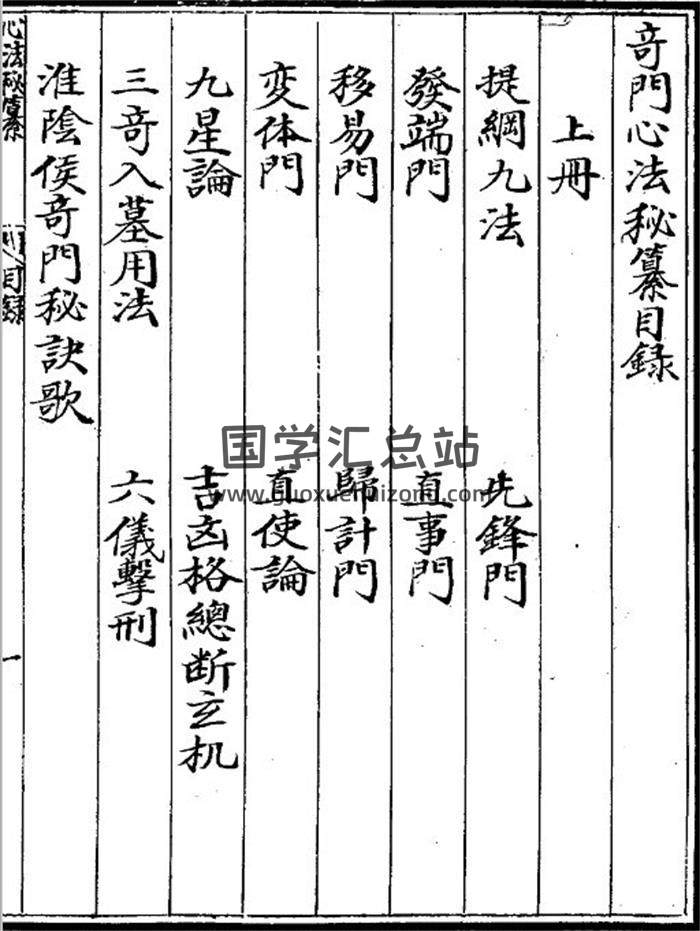 奇門心法秘纂目錄
上冊
提綱九法 先鋒門
發端門 直事門
移易門 歸計門
变体門 直使論
九星論 吉凶格總断玄机
三奇入墓用法 六儀擊刑
淮陰侯奇門秘訣歌
心法秘纂 目錄 一
国学汇总站
www.guoxuehuizong.com